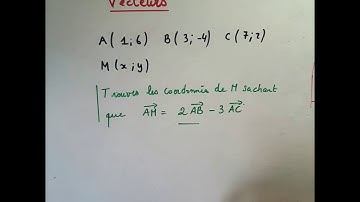 Vecteurs
A ( 1 ; 6 ) B ( 3 ; -4 ) C ( 7 ; 2 )
M ( x ; y )
Trouver les coordonnées de M sachant
que AM = 2 AB - 3 AC